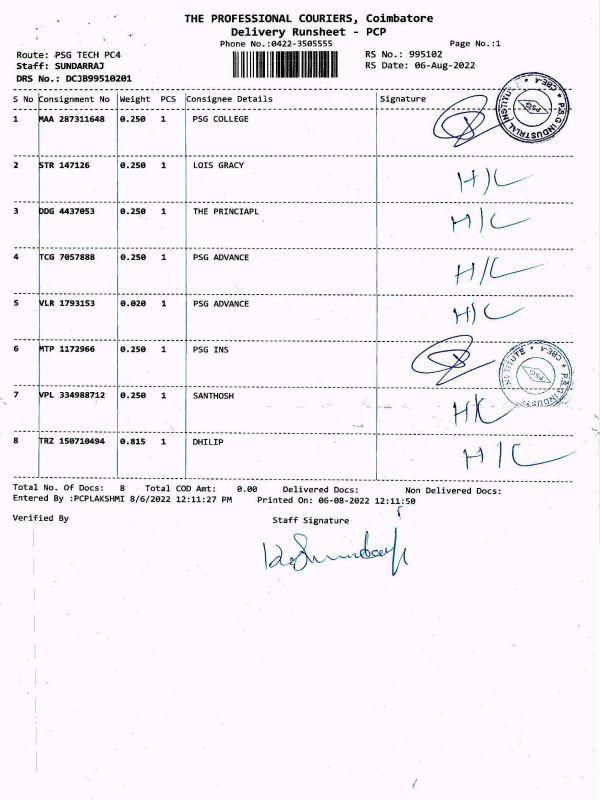 THE PROFESSIONAL COURIERS, Coimbatore
Delivery Runsheet - PCP
Phone No.:0422-3505555 Page No.:1
Route: PSG TECH PC4 RS No.: 995102
Staff: SUNDARRAJ RS Date: 06-Aug-2022
DRS No.: DCJB99510201
S No Consignment No Weight PCS Consignee Details Signature
1 MAA 287311648 0.250 1 PSG COLLEGE
P.S.G INDUSTRIAL INSTITUTE * CBE.4 * PSG
2 STR 147126 0.250 1 LOIS GRACY H/C
3 DDG 4437053 0.250 1 THE PRINCIAPL H/C
4 TCG 7057888 0.250 1 PSG ADVANCE H/C
5 VLR 1793153 0.020 1 PSG ADVANCE H/C
6 MTP 1172966 0.250 1 PSG INS
P.S.G INDUSTRIAL INSTITUTE * CBE.4 * PSG
7 VPL 334988712 0.250 1 SANTHOSH
8 TRZ 150710494 0.815 1 DHILIP H/C
Total No. Of Docs: 8 Total COD Amt: 0.00 Delivered Docs: Non Delivered Docs:
Entered By :PCPLAKSHMI 8/6/2022 12:11:27 PM Printed On: 06-08-2022 12:11:50
Verified By Staff Signature